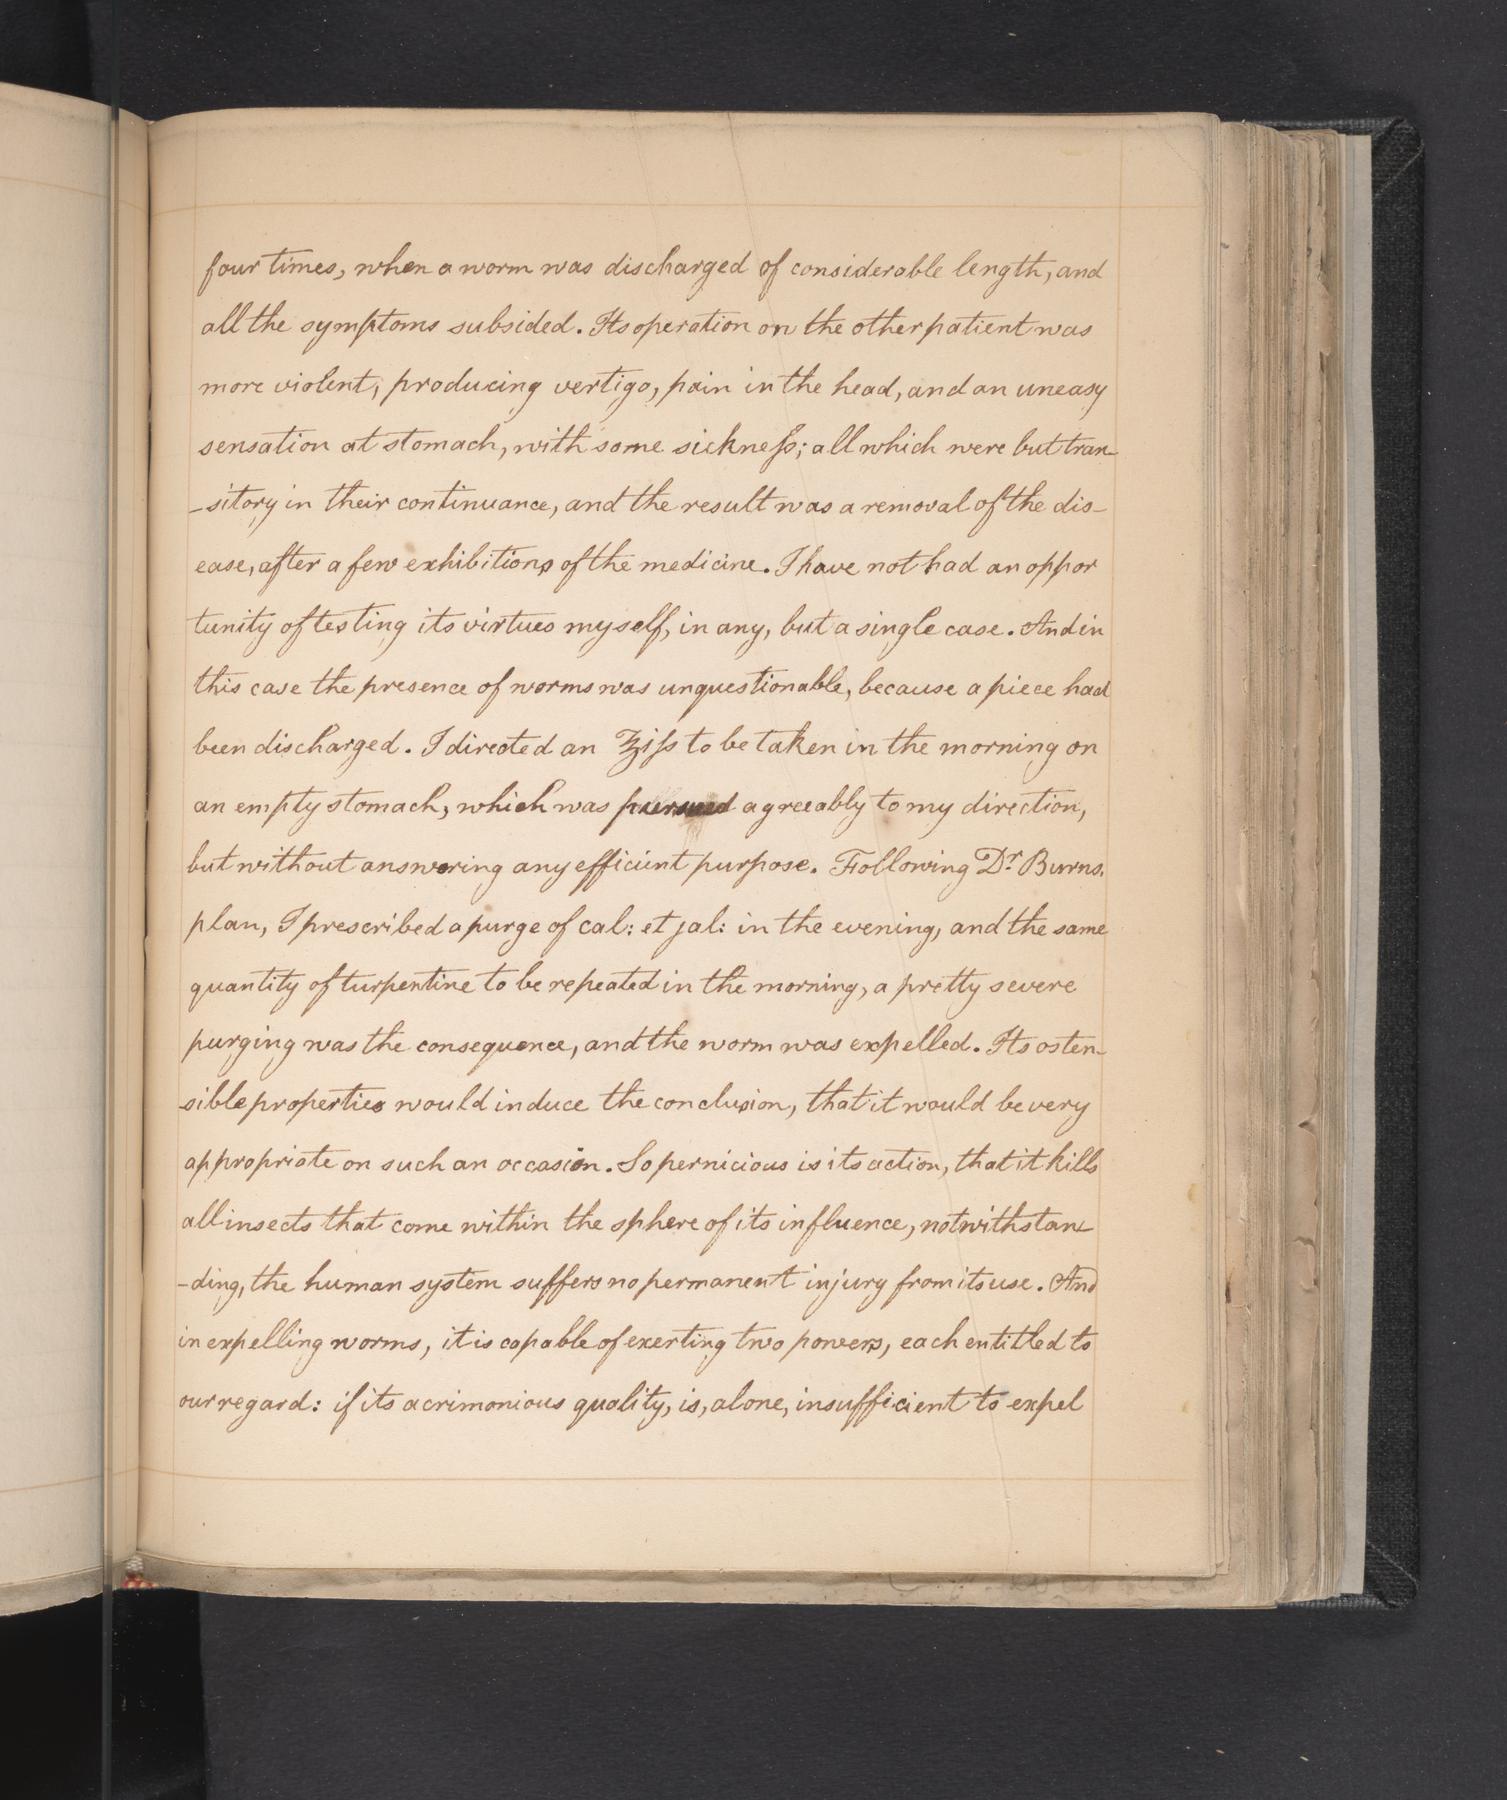 four times, when a worm was discharged of considerable length, and
all the symptoms subsided. Its operation on the other patient was
more violent, producing vertigo, pain in the head, and an uneasy
sensation at stomach, with some sickneſs; all which were but tran-
-sitory in their continuance, and the result was a removal of the dis-
ease, after a few exhibitions of the medicine. I have not had an oppor
tunity of testing its virtues myself, in any, but a single case. And in
this case the presence of worms was unquestionable, because a piece had
been discharged. I directed an ℥iſs to be taken in the morning on
an empty stomach, which was pursued agreeably to my direction,
but without answering any efficient purpose. Following Dr. Burns.
plan, I prescribed a purge of cal: et jal: in the evening, and the same
quantity of turpentine to be repeated in the morning, a pretty severe
purging was the consequence, and the worm was expelled. Its osten-
sible properties would induce the conclusion, that it would be very
appropriate on such an occasion. So pernicious is its action, that it kills
all insects that come within the sphere of its influence, notwithstan
-ding, the human system suffers no permanent injury from its use. And
in expelling worms, it is capable of exerting two powers, each entitled to
our regard: if its acrimonious quality, is, alone, insufficient to expel